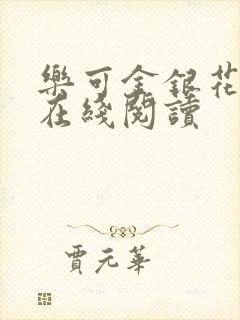 樂可金銀花
在綫閱讀
賈元華